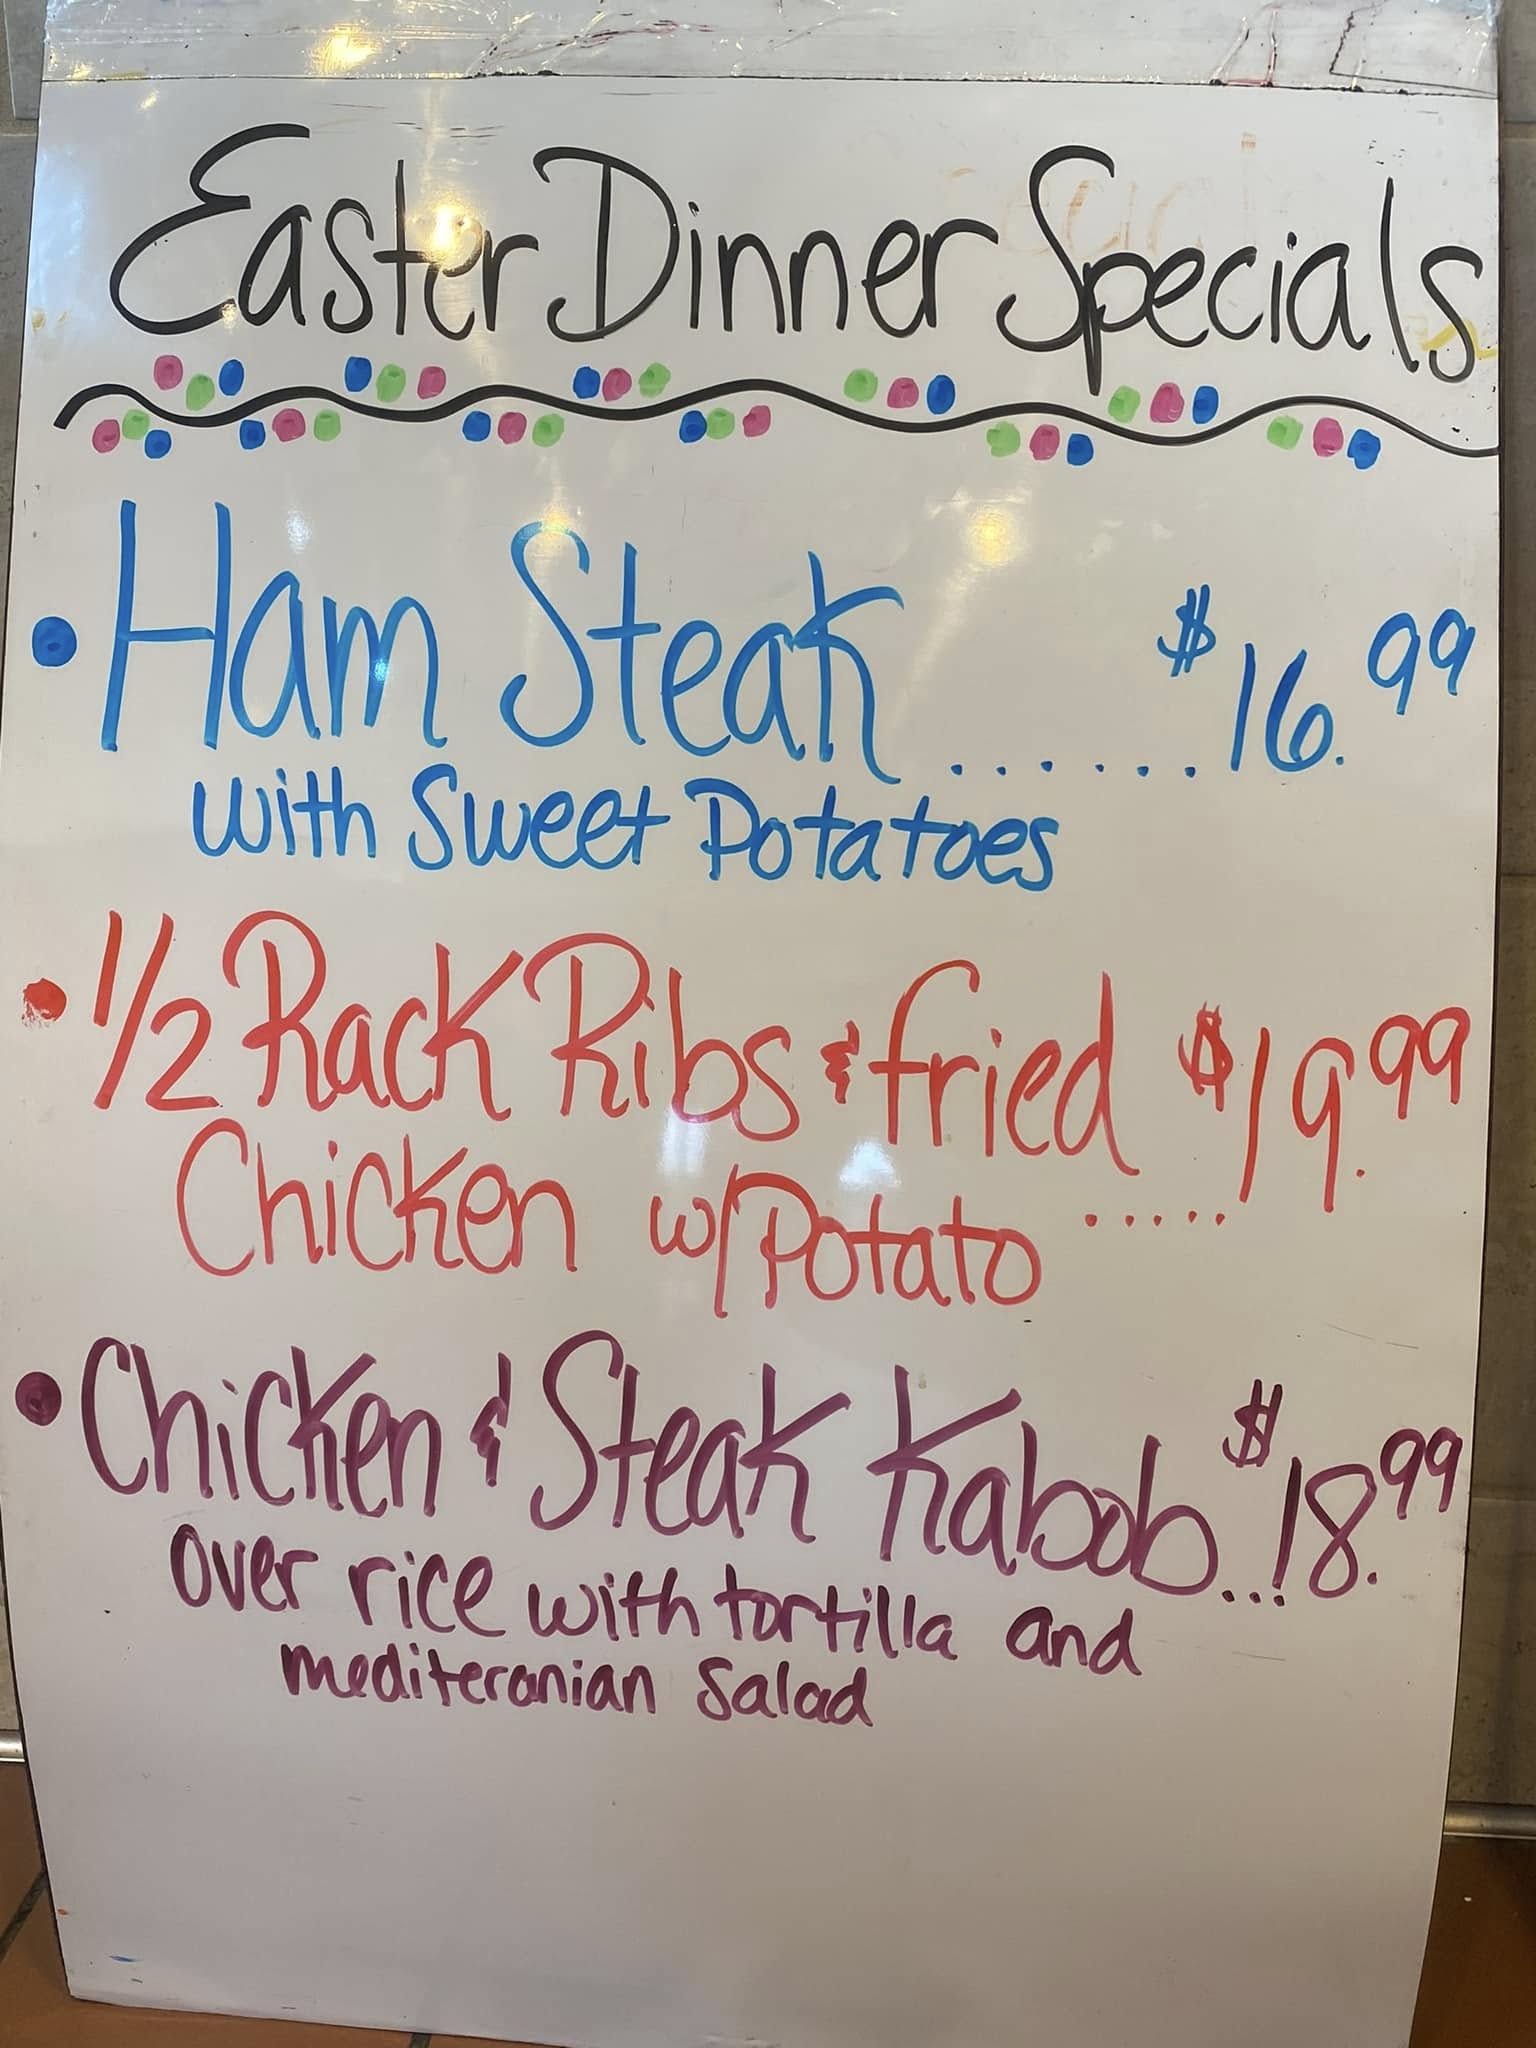 Easter Dinner Specials
• Ham Steak ....... $16.99
with Sweet Potatoes
• 1/2 Rack Ribs & fried $19.99
Chicken w/Potato .....
• Chicken & Steak Kabob...$18.99
over rice with tortilla and
mediteranian salad